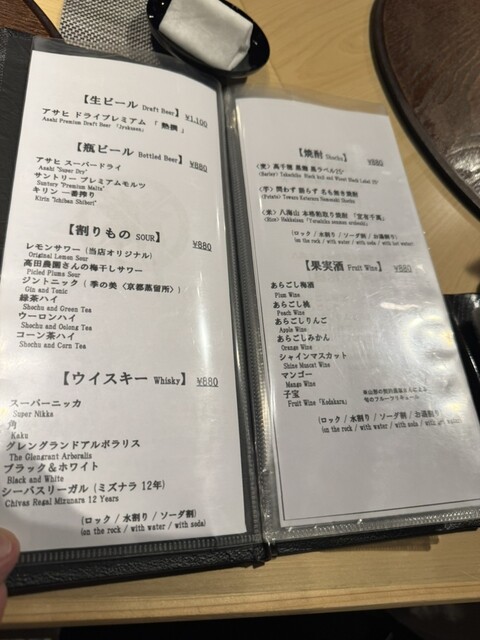 【生ビール Draft Beer】 ¥1,100
アサヒ ドライプレミアム 「 熟撰 」
Asahi Premium Draft Beer 「Jyukusen」
【瓶ビール Bottled Beer】 ¥880
アサヒ スーパードライ
Asahi "Super Dry"
サントリー プレミアムモルツ
Suntory "Premium Malts"
キリン 一番搾り
Kirin "Ichiban Shibori"
【割りもの SOUR】 ¥880
レモンサワー (当店オリジナル)
Original Lemon Sour
高田農園さんの梅干しサワー
Picled Plums Sour
ジントニック ( 季の美〈京都蒸留所〉)
Gin and Tonic
緑茶ハイ
Shochu and Green Tea
ウーロンハイ
Shochu and Oolong Tea
コーン茶ハイ
Shochu and Corn Tea
【ウイスキー Whisky】 ¥880
スーパーニッカ
Super Nikka
角
Kaku
グレングランドアルボラリス
The Glengrant Arboralis
ブラック&ホワイト
Black and White
シーバスリーガル (ミズナラ 12年)
Chivas Regal Mizunara 12 Years
(ロック / 水割り / ソーダ割)
(on the rock / with water / with soda)
【焼酎 Shochu】 ¥880
(麦) 高千穂 黒麹 黒ラベル25°
(Barley) Takachiho Black Label 25°
(芋) 問わず 語らず 名も無き焼酎
(Potato) Towazu Katarazu Namonaki Shochu
(米) 八海山 本格粕取り焼酎 「宜有千萬」
(Rice) Hakkaisan
(ロック / 水割り / ソーダ割 / お湯割り)
(on the rock / with water / with soda / with hot water)
【果実酒 Fruit Wine】 ¥880
あらごし梅酒
Plum Wine
あらごし桃
Peach Wine
あらごしりんご
Apple Wine
あらごしみかん
Orange Wine
シャインマスカット
Shine Muscat Wine
マンゴー
Mango Wine
子宝
Fruit Wine 「Kodakara」
旬のフルーツリキュール
(ロック / 水割り / ソーダ割 / お湯割り)
(on the rock / with water / with soda / with hot water)